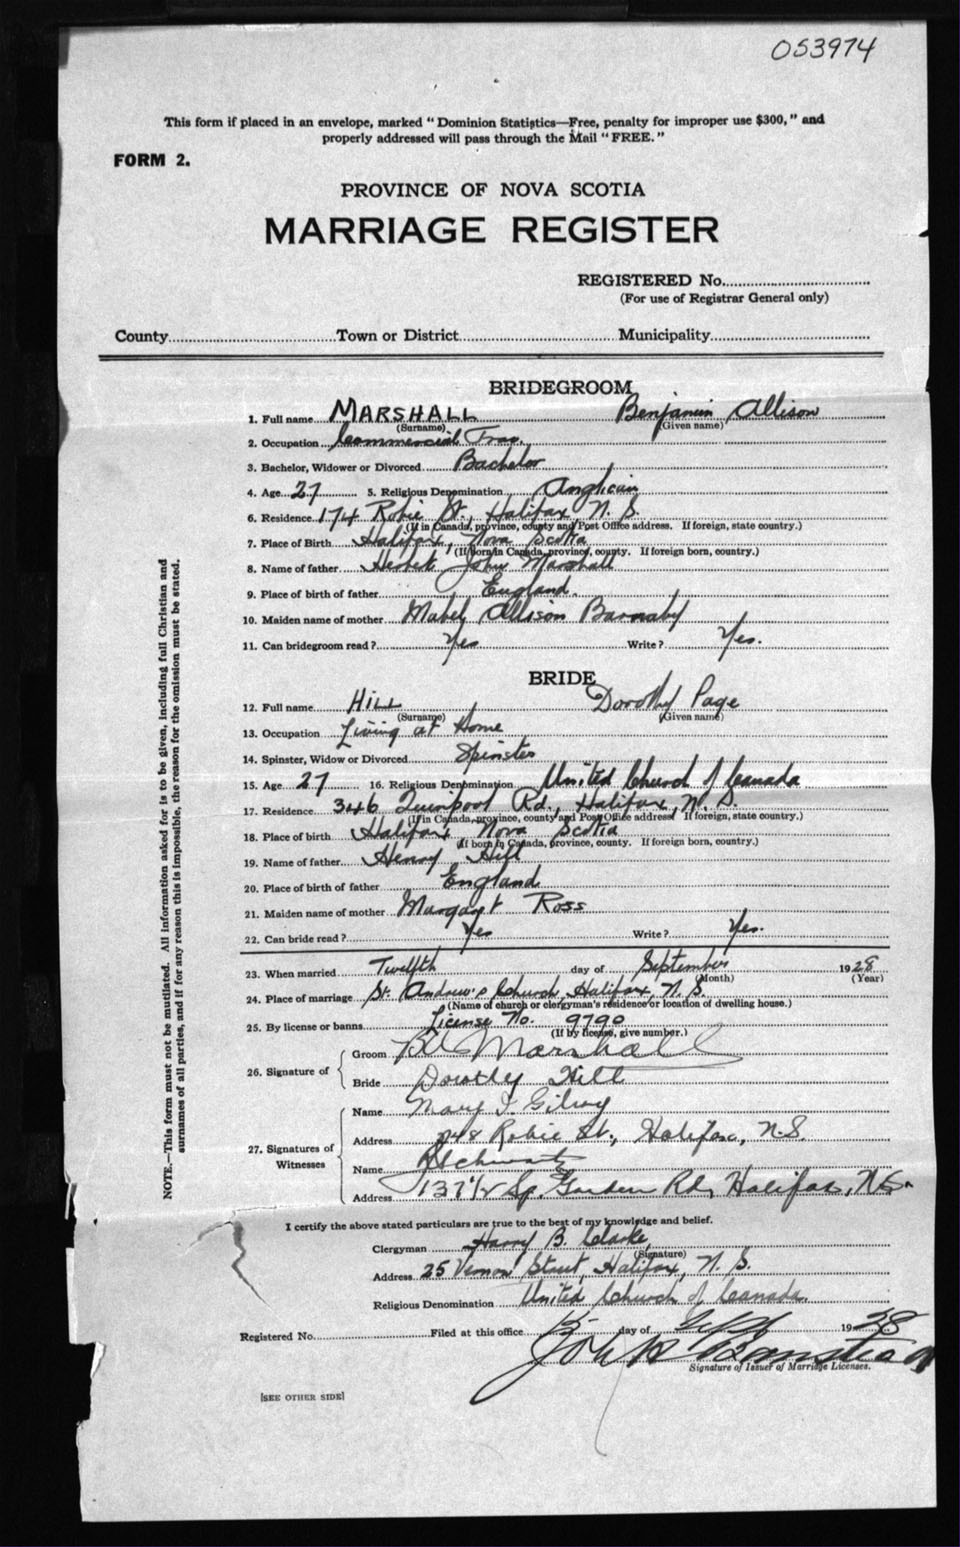 053974
This form if placed in an envelope, marked "Dominion Statistics—Free, penalty for improper use $300," and
properly addressed will pass through the Mail "FREE."
FORM 2.
PROVINCE OF NOVA SCOTIA
MARRIAGE REGISTER
REGISTERED No.
(For use of Registrar General only)
County Town or District Municipality
BRIDEGROOM
1. Full name MARSHALL Benjamin Allison
(Surname) (Given name)
2. Occupation Commercial Trav.
3. Bachelor, Widower or Divorced Bachelor
4. Age 27 5. Religious Denomination Anglican
6. Residence 174 Robie St., Halifax, N. S.
(If in Canada, province, county and Post Office address. If foreign, state country.)
7. Place of Birth Halifax, Nova Scotia
(If born in Canada, province, county. If foreign born, country.)
8. Name of father Herbert John Marshall
9. Place of birth of father England.
10. Maiden name of mother Mabel Allison Barnaby
11. Can bridegroom read? Yes Write? Yes.
BRIDE
12. Full name HILL Dorothy Page
(Surname) (Given name)
13. Occupation Living at Home
14. Spinster, Widow or Divorced Spinster
15. Age 27 16. Religious Denomination United Church of Canada
17. Residence 346 Quinpool Rd., Halifax, N. S.
(If in Canada, province, county and Post Office address If foreign, state country.)
18. Place of birth Halifax, Nova Scotia
(If born in Canada, province, county. If foreign born, country.)
19. Name of father Henry Hill
20. Place of birth of father England
21. Maiden name of mother Margaret Ross
22. Can bride read? Yes Write? Yes.
23. When married Twelfth day of September 1928
(Month) (Year)
24. Place of marriage St. Andrew's Church, Halifax, N. S.
(Name of church or clergyman's residence or location of dwelling house.)
25. By license or banns License No. 9790
(If by license, give number.)
26. Signature of Groom Marshall
Bride Dorothy Hill
27. Signatures of Witnesses Name Mary I. Gilroy
Address 248 Robie St., Halifax, N.S.
Name Schwartz
Address 137½ Sp. Garden Rd, Halifax, N.S.
I certify the above stated particulars are true to the best of my knowledge and belief.
Clergyman Harry B. Clarke
(Signature)
Address 25 Vernon Street, Halifax, N. S.
Religious Denomination United Church of Canada.
Registered No. Filed at this office day of Sept 1928
Signature of Issuer of Marriage Licenses.
[SEE OTHER SIDE]
NOTE.—This form must not be mutilated. All information asked for is to be given, including full Christian and
surnames of all parties, and if for any reason this is impossible, the reason for the omission must be stated.